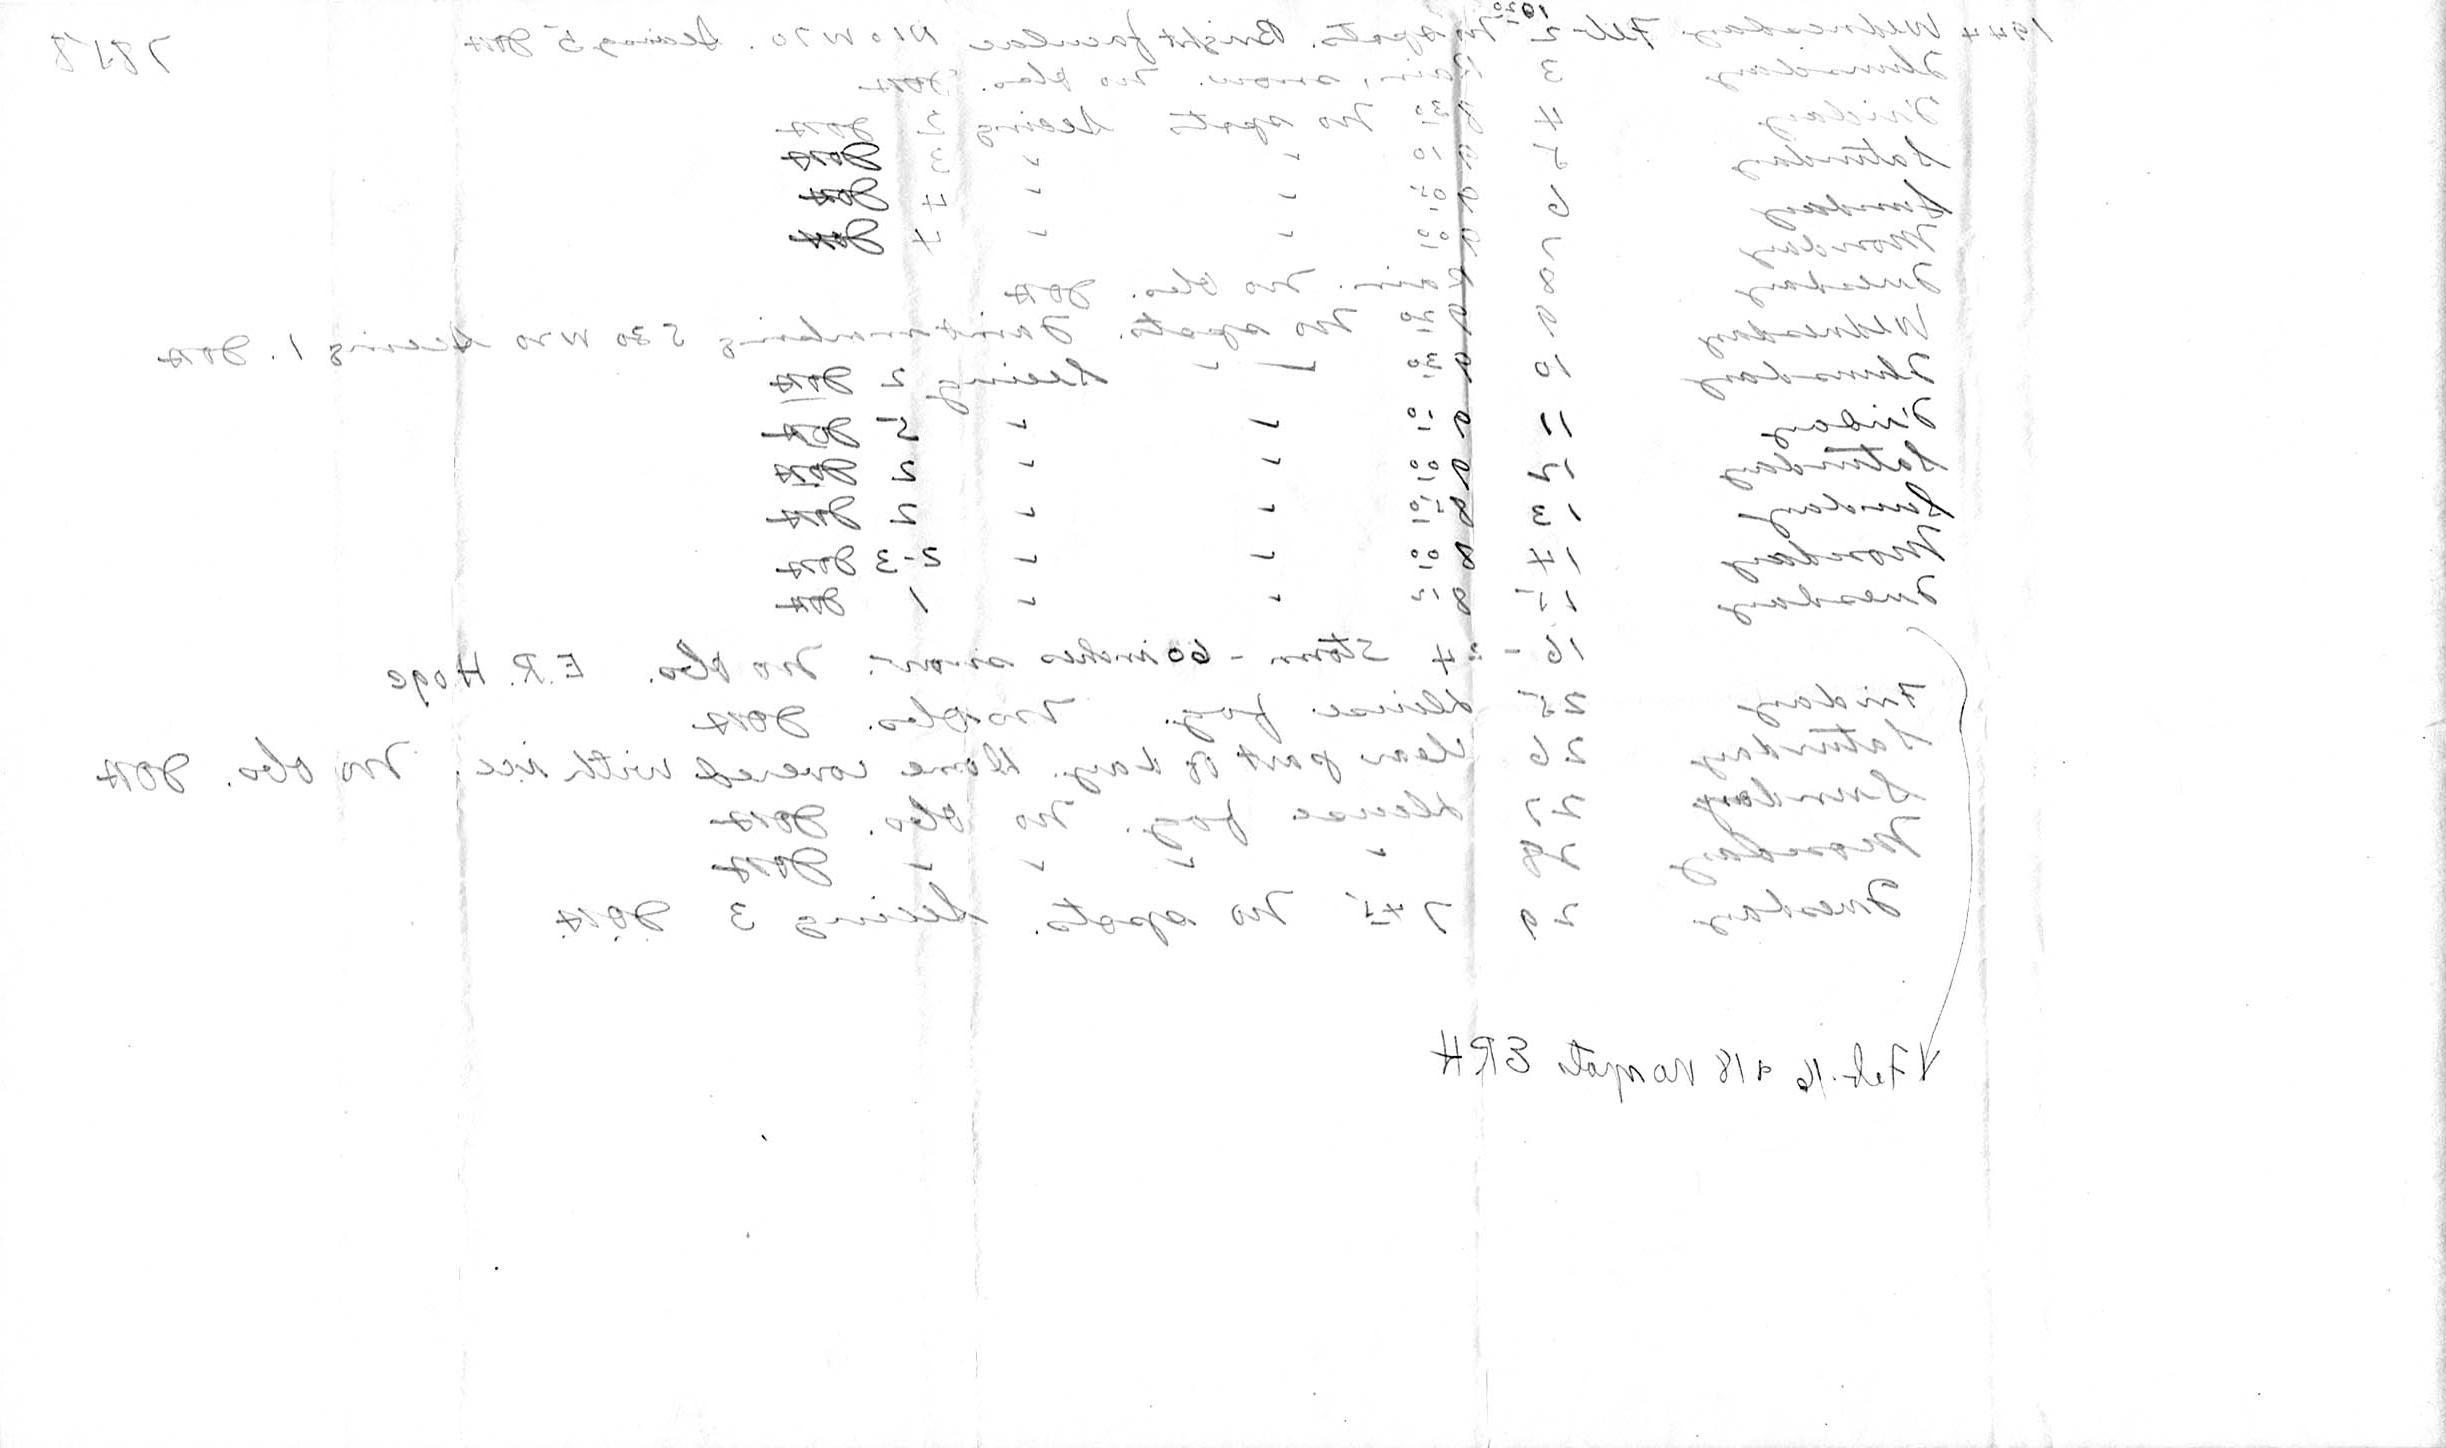 1944 Wednesday Feb 2 10 20 No spots. Bright faculae N10 W70. Seeing 5 JOH
Thursday 3 Rain, snow. No obs. JOH
Friday 4 8 30 No spots Seeing 2 JOH
Saturday 5 9 10 " " 3 JOH
Sunday 6 9 " " 4 JOH
Monday 7 9 00 " " 4 JOH
Tuesday 8 Rain. No obs. JOH
Wednesday 9 9 20 No spots. Faint marking S30 W70 Seeing 1. JOH
Thursday 10 9 30 " " Seeing 2 JOH
Friday 11 9 10 " " 5 JOH
Saturday 12 9 00 " " 2 JOH
Sunday 13 8 " " 2 JOH
Monday 14 8 00 " " 2-3 JOH
Tuesday 15 8 " " 1 JOH
16 - 24 Storm - 60 inches snow. No obs. E.R. Hoge
Friday 25 Dense fog. No obs. JOH
Saturday 26 Clear part of day. Dome covered with ice. No obs. JOH
Sunday 27 Dense fog. No obs. JOH
Monday 28 " " " " JOH
Tuesday 29 7 45 No spots. Seeing 3 JOH
Feb. 16 + 18 No spots ERH